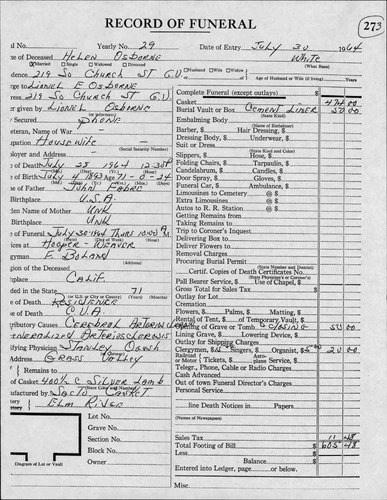 RECORD OF FUNERAL
273
al No. Yearly No. 29 Date of Entry July 30 1964
e of Deceased Helen Osborne White
Married Single Widowed Divorced (What Race)
dence 219 So Church St G.V. Husband Wife Widow Age of Husband or Wife (if living)
rge to Lionel E Osborne
ress 219 So Church St G.V.
er given by Lionel Osborne
Secured Phone
eteran, Name of War
upation Housewife
(Social Security Number)
loyer and Address
of Death July 28 1964 12:30 P
of Birth July 4 1893 Age 71-0-24
e of Father Juan Fabre
Birthplace U.S.A
den Name of Mother Unk
Birthplace Unk
of Funeral July 30 1964 Thurs 10:00 A
ices at Hooper-Weaver
gyman E. Boland
gion of the Deceased
place Calif.
ded in the State 71
of Death Residence
of Death C.V.A.
tributory Causes Cerebral Arterioscler
eneralized Arteriosclerosis
ifying Physician Stanley
Address Grass Valley
Remains to
of Casket 400% C Silver Lamb
ufactured by Sacto Casket
Elm River
Lot No.
Grave No.
Section No.
Block No.
Owner
Diagram of Lot or Vault
Complete Funeral (except outlays) $
Casket 474 00
Burial Vault or Box Cement Liner 50 00
(State Kind)
Embalming Body
Barber, $ Hair Dressing, $
Dressing Body, $ Underwear, $
Suit or Dress
(State Kind and Color)
Slippers, $ Hose, $
Folding Chairs, $ Tarpaulin, $
Candelabrum, $ Candles, $
Door Spray, $ Gloves, $
Funeral Car, $ Ambulance, $
Limousines to Cemetery @ $
Extra Limousines @ $
Autos to R. R. Station @ $
Getting Remains from
Taking Remains to
Trip to Coroner's Inquest
Delivering Box to
Deliver Flowers to
Removal Charges
Procuring Burial Permit
(State Number and District)
Certif. Copies of Death Certificates No.
(State Physician's or Coroner's)
Pall Bearer Service, $ Use of Chapel, $
Gross Total for Sales Tax $
Outlay for Lot
Cremation
Flowers, $ Palms, $ Matting, $
Rental of Tent, $ of Temporary Vault, $
Opening of Grave or Tomb Closing 50 00
Lining Grave, $ Lowering Device, $
Outlay for Shipping Charges
Clergymen, $15 Singers, $ Organist, $5 20 00
Railroad or Motor Tickets, $ Aeroplane Service, $
Telegr., Phone, Cable or Radio Charges
Cash Advanced
Out of town Funeral Director's Charges
Personal Services
line Death Notices in Papers
(Names of Newspapers)
Sales Tax 11 48
Total Footing of Bill $ 605 48
Less $
Balance $
Entered into Ledger, page or below.
Misc.